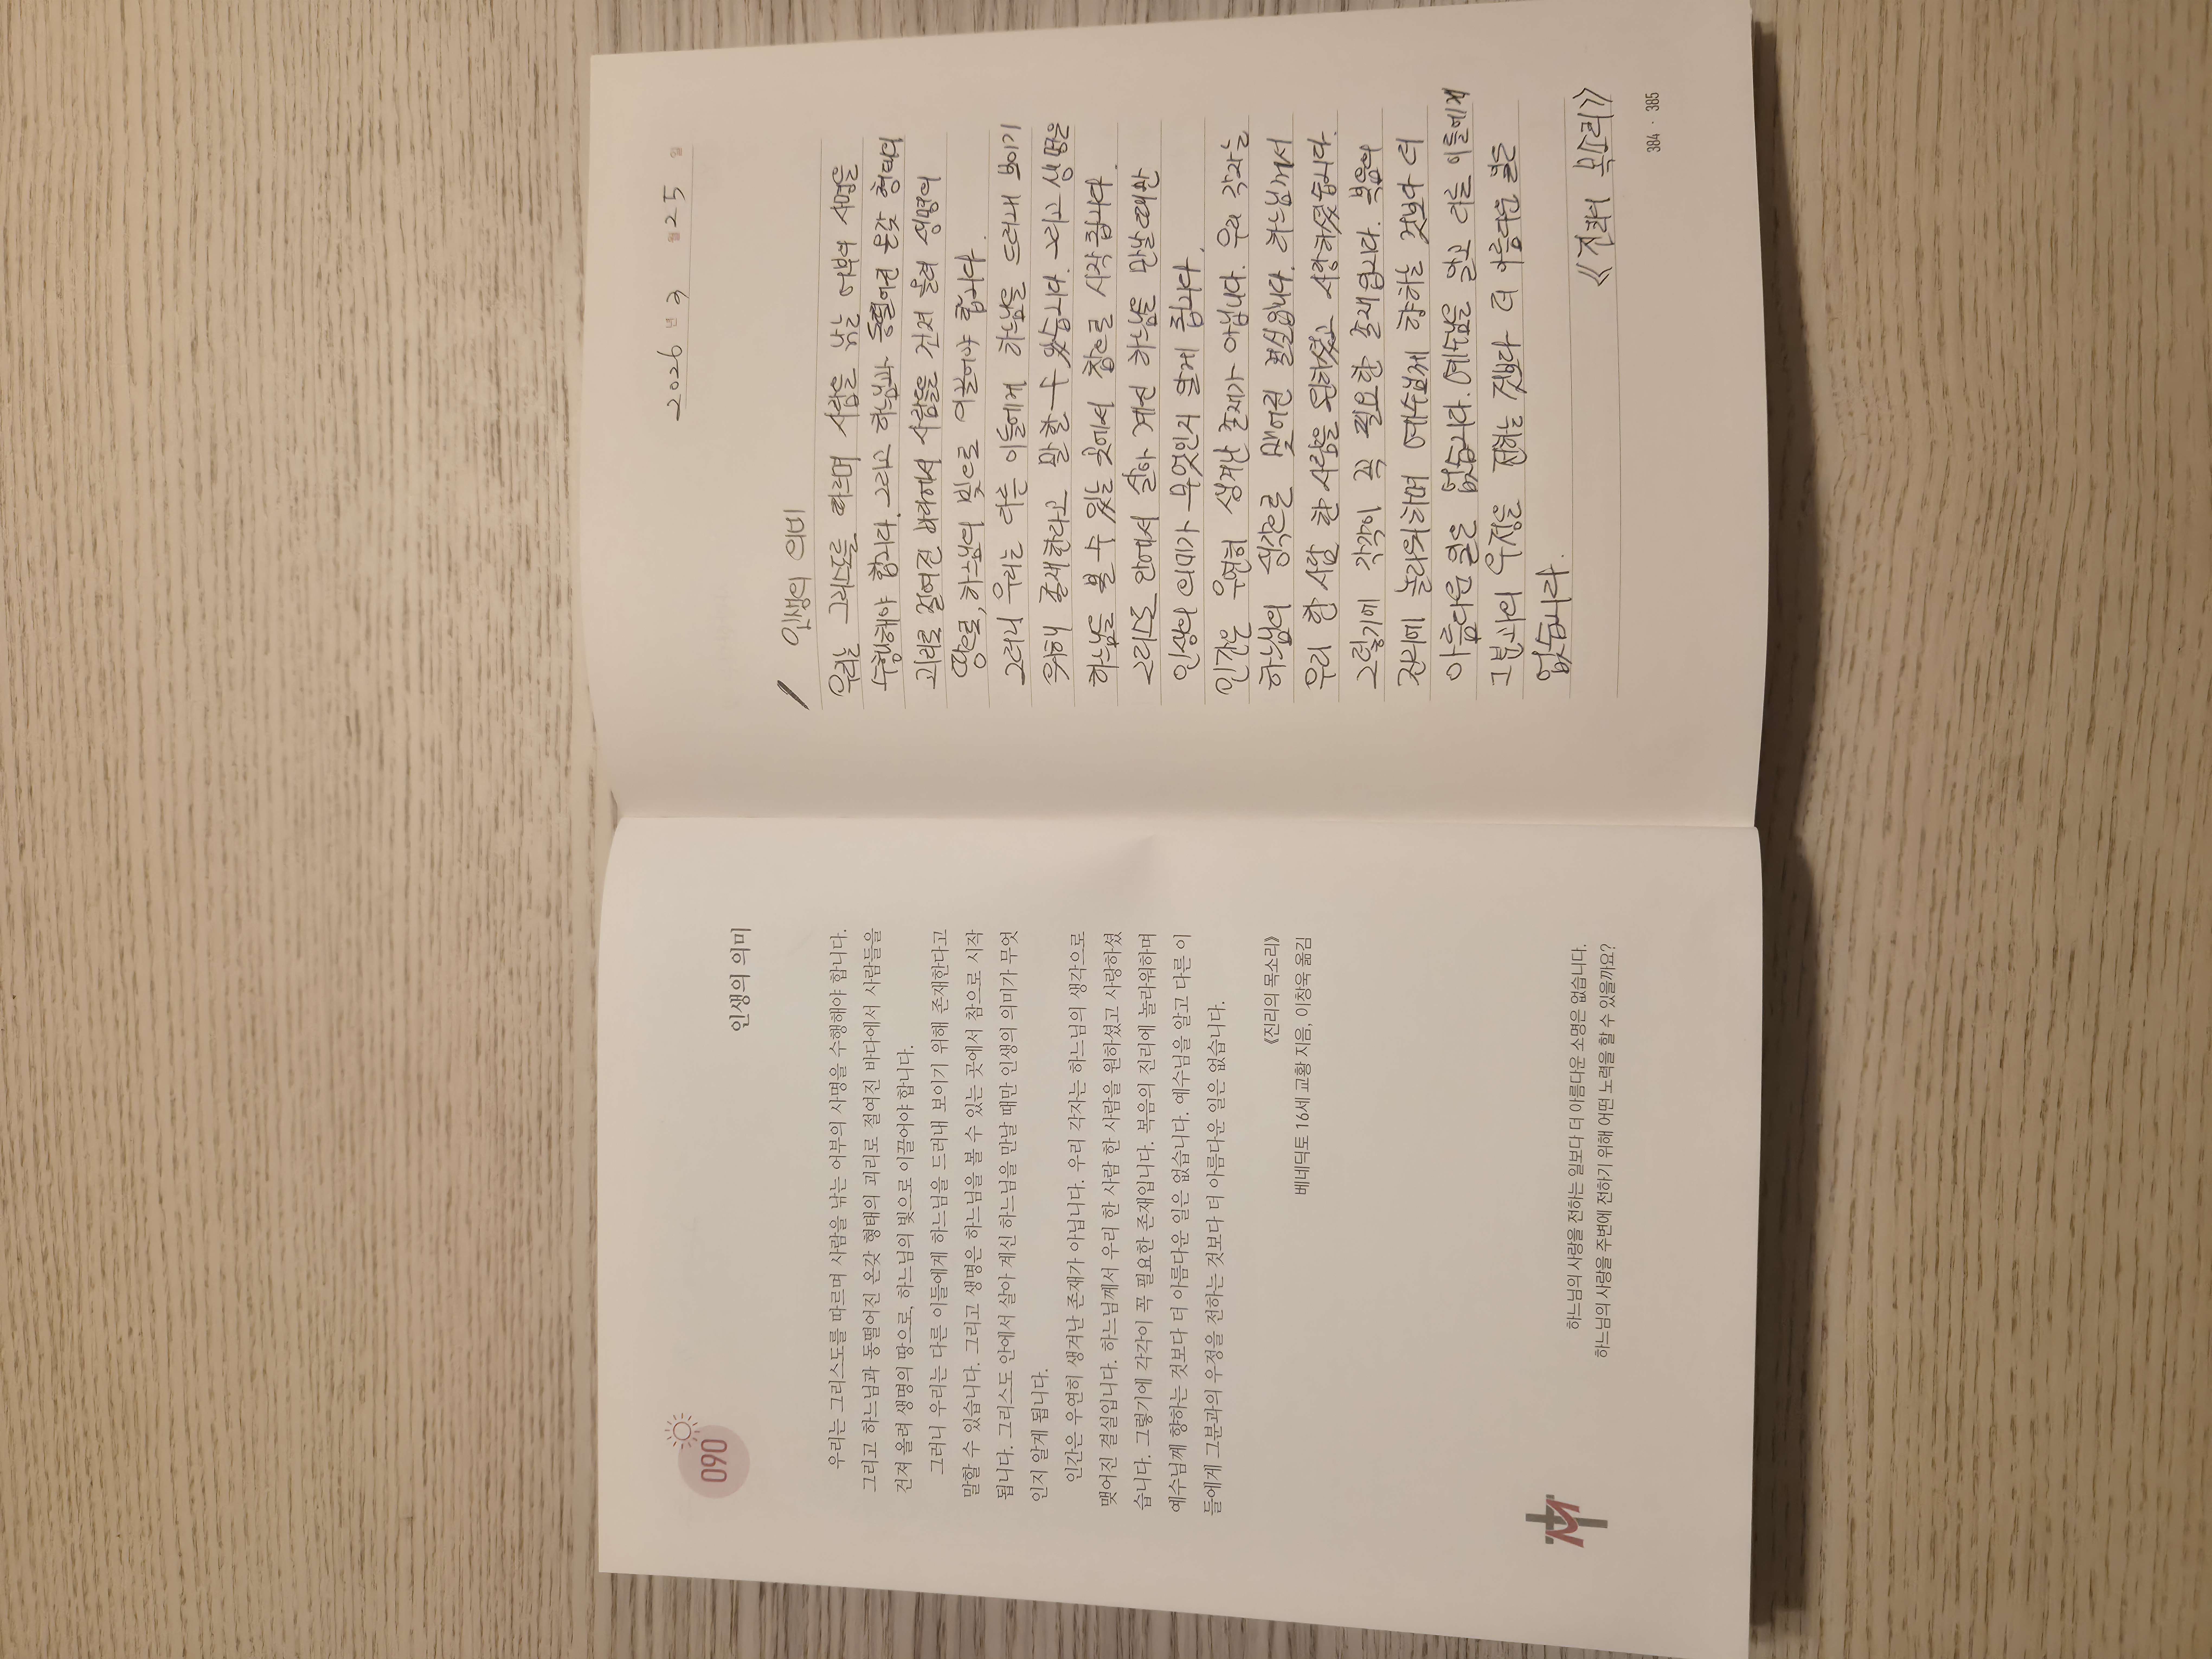 090
인생의 의미
우리는 그리스도를 따르며 사람을 낚는 어부의 사명을 수행해야 합니다.
그리고 하느님과 동떨어진 온갖 형태의 괴리로 절여진 바다에서 사람들을
건져 올려 생명의 땅으로, 하느님의 빛으로 이끌어야 합니다.
그러니 우리는 다른 이들에게 하느님을 드러내 보이기 위해 존재한다고
말할 수 있습니다. 그리고 생명은 하느님을 볼 수 있는 곳에서 참으로 시작
됩니다. 그리스도 안에서 살아 계신 하느님을 만날 때만 인생의 의미가 무엇
인지 알게 됩니다.
인간은 우연히 생겨난 존재가 아닙니다. 우리 각자는 하느님의 생각으로
맺어진 결실입니다. 하느님께서 우리 한 사람 한 사람을 원하셨고 사랑하셨
습니다. 그렇기에 각각이 꼭 필요한 존재입니다. 복음의 진리에 놀라워하며
예수님께 향하는 것보다 더 아름다운 일은 없습니다. 예수님을 알고 다른 이
들에게 그분과의 우정을 전하는 것보다 더 아름다운 일은 없습니다.
《진리의 목소리》
베네딕토 16세 교황 지음, 이창욱 옮김
하느님의 사랑을 전하는 일보다 더 아름다운 소명은 없습니다.
하느님의 사랑을 주변에 전하기 위해 어떤 노력을 할 수 있을까요?
2026 년 3 월 25 일
인생의 의미
우리는 그리스도를 따르며 사람을 낚는 어부의 사명을
수행해야 합니다. 그리고 하느님과 동떨어진 온갖 형태의
괴리로 절여진 바다에서 사람들을 건져 올려 생명의
땅으로, 하느님의 빛으로 이끌어야 합니다.
그러니 우리는 다른 이들에게 하느님을 드러내 보이기
위해 존재한다고 말할 수 있습니다. 그리고 생명은
하느님을 볼 수 있는 곳에서 참으로 시작됩니다.
그리스도 안에서 살아 계신 하느님을 만날 때만
인생의 의미가 무엇인지 알게 됩니다.
인간은 우연히 생겨난 존재가 아닙니다. 우리 각자는
하느님의 생각으로 맺어진 결실입니다. 하느님께서
우리 한 사람 한 사람을 원하셨고 사랑하셨습니다.
그렇기에 각각이 꼭 필요한 존재입니다. 복음의
진리에 놀라워하며 예수님께 향하는 것보다 더
아름다운 일은 없습니다. 예수님을 알고 다른 이들에게
그분과의 우정을 전하는 것보다 더 아름다운 일은
없습니다.
《진리의 목소리》
384 · 385